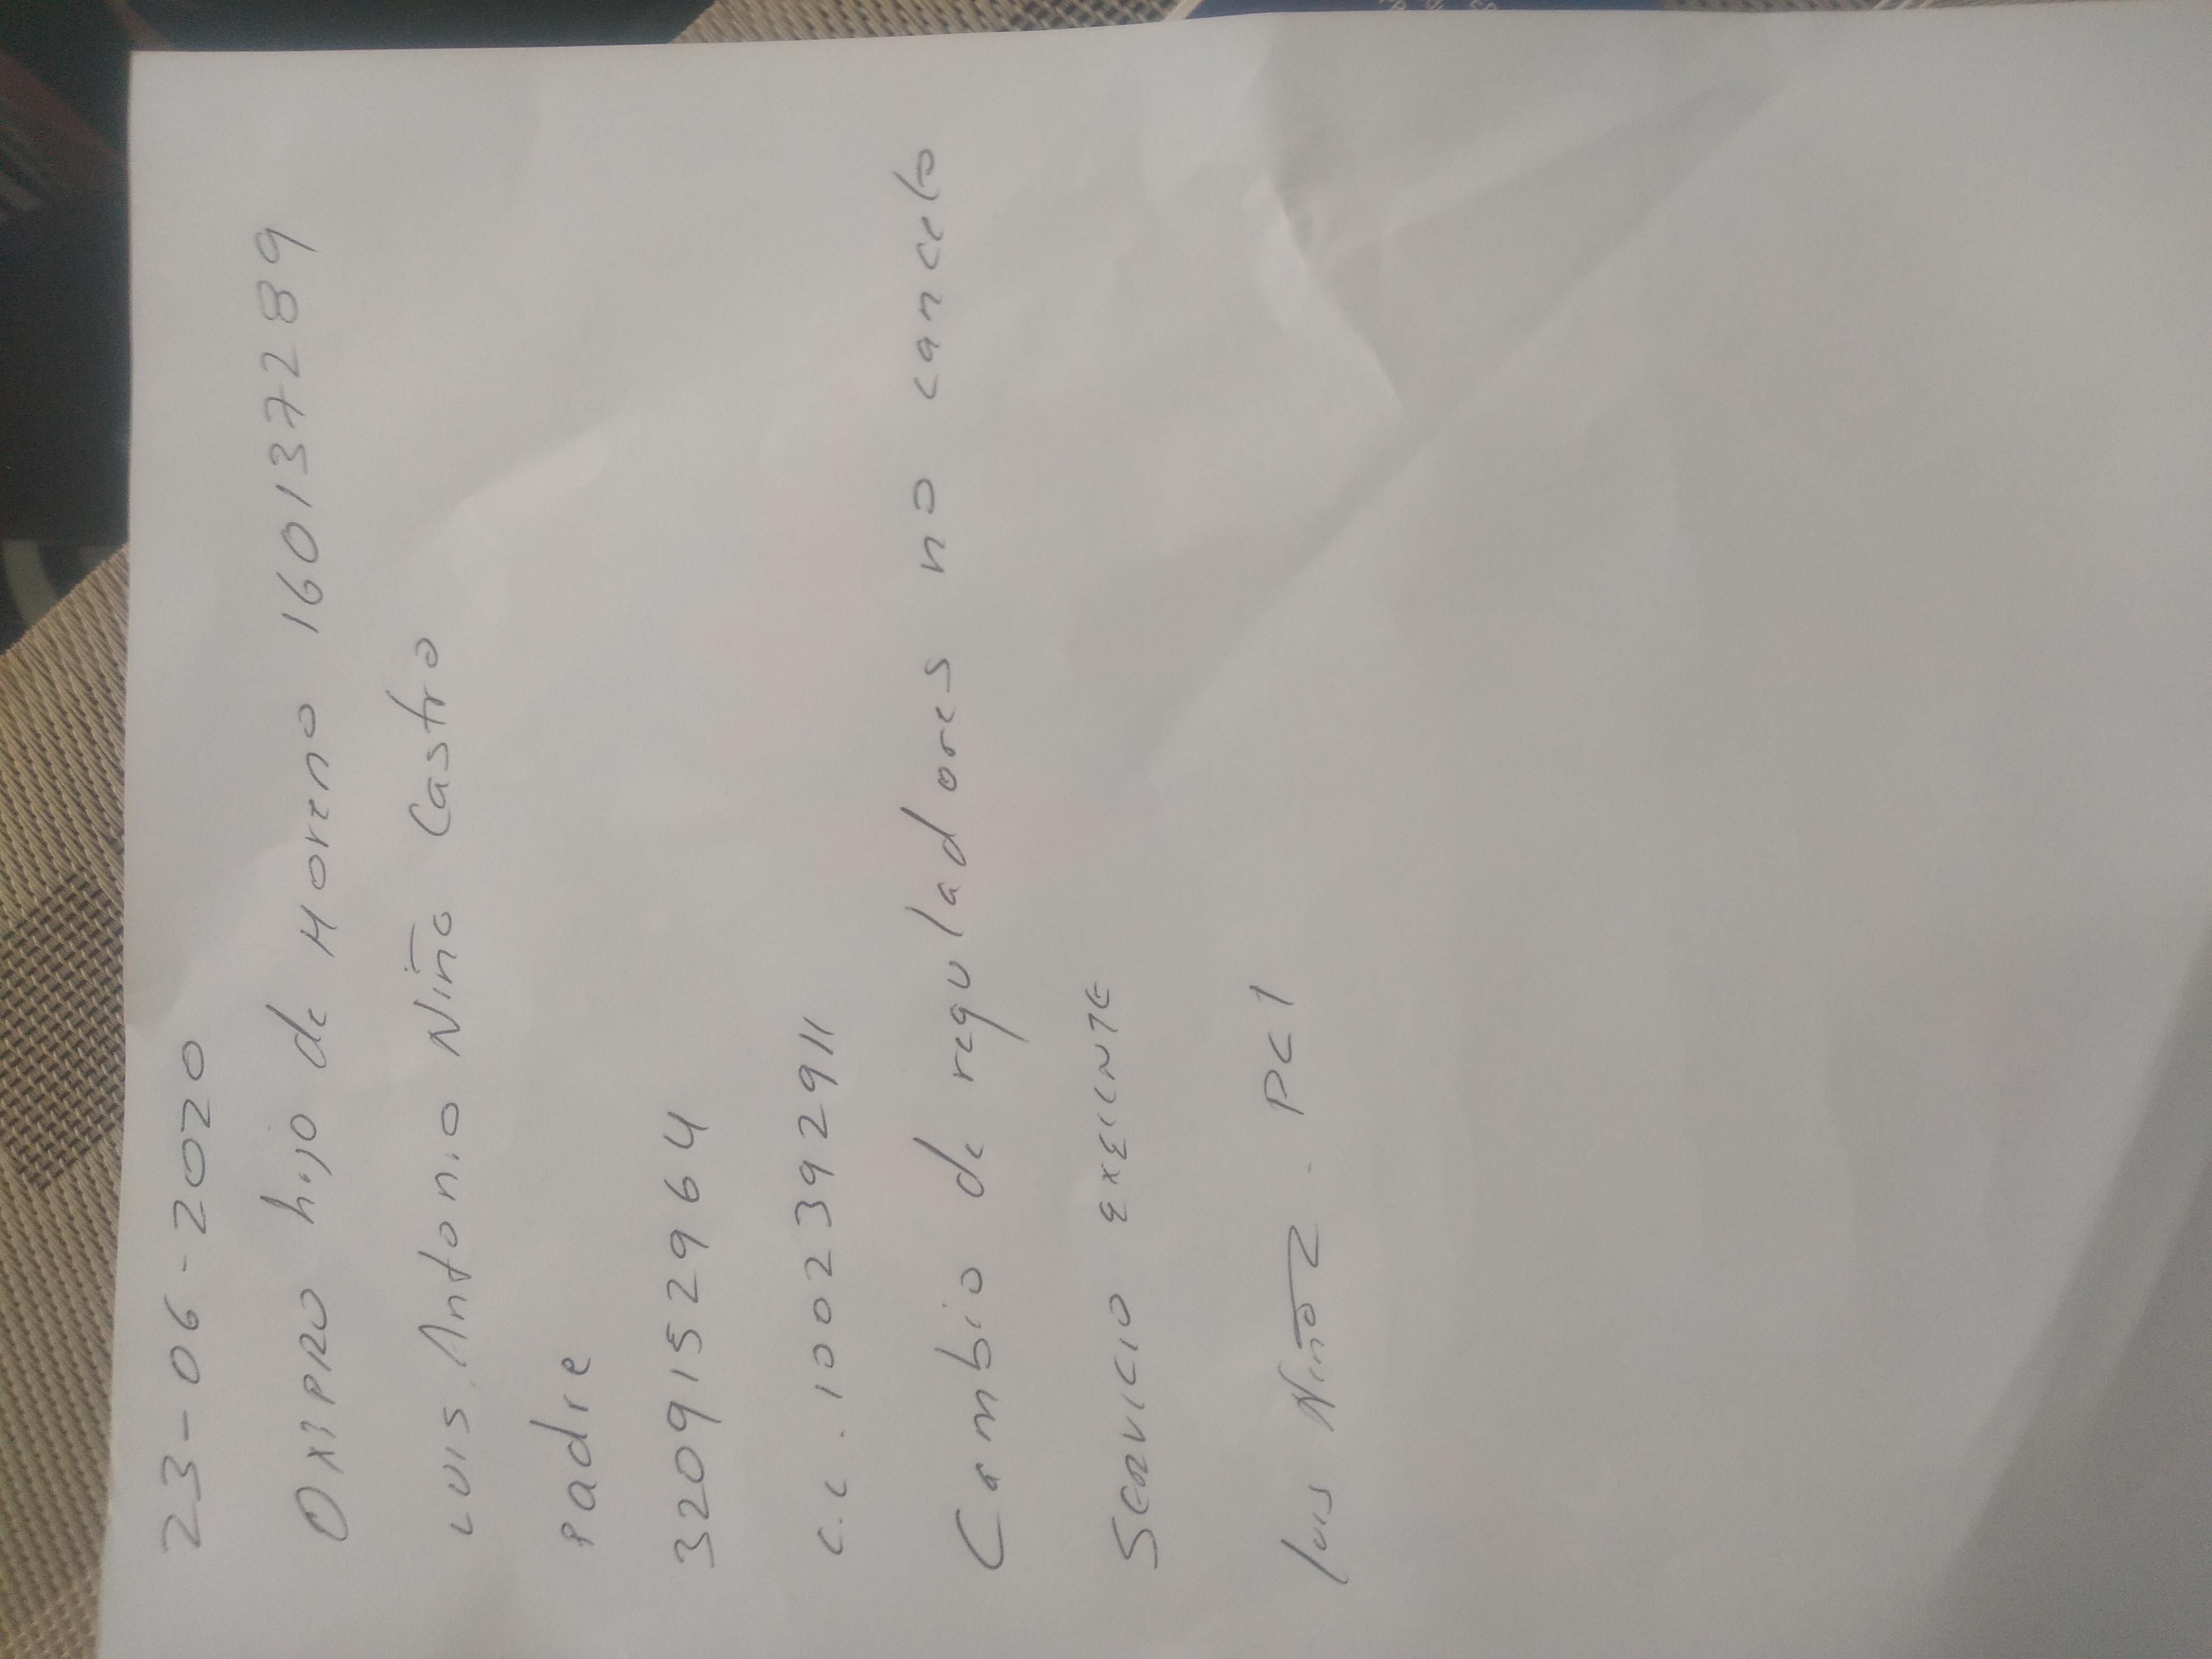 23-06-2020
OXIPRO hijo de Moreno 160137289
Luis Antonio Niño Castro
Padre
3209152964
C.C. 1002392911
Cambio de reguladores no cancelo
Servicio EXELENTE
Luis Niño . PC1